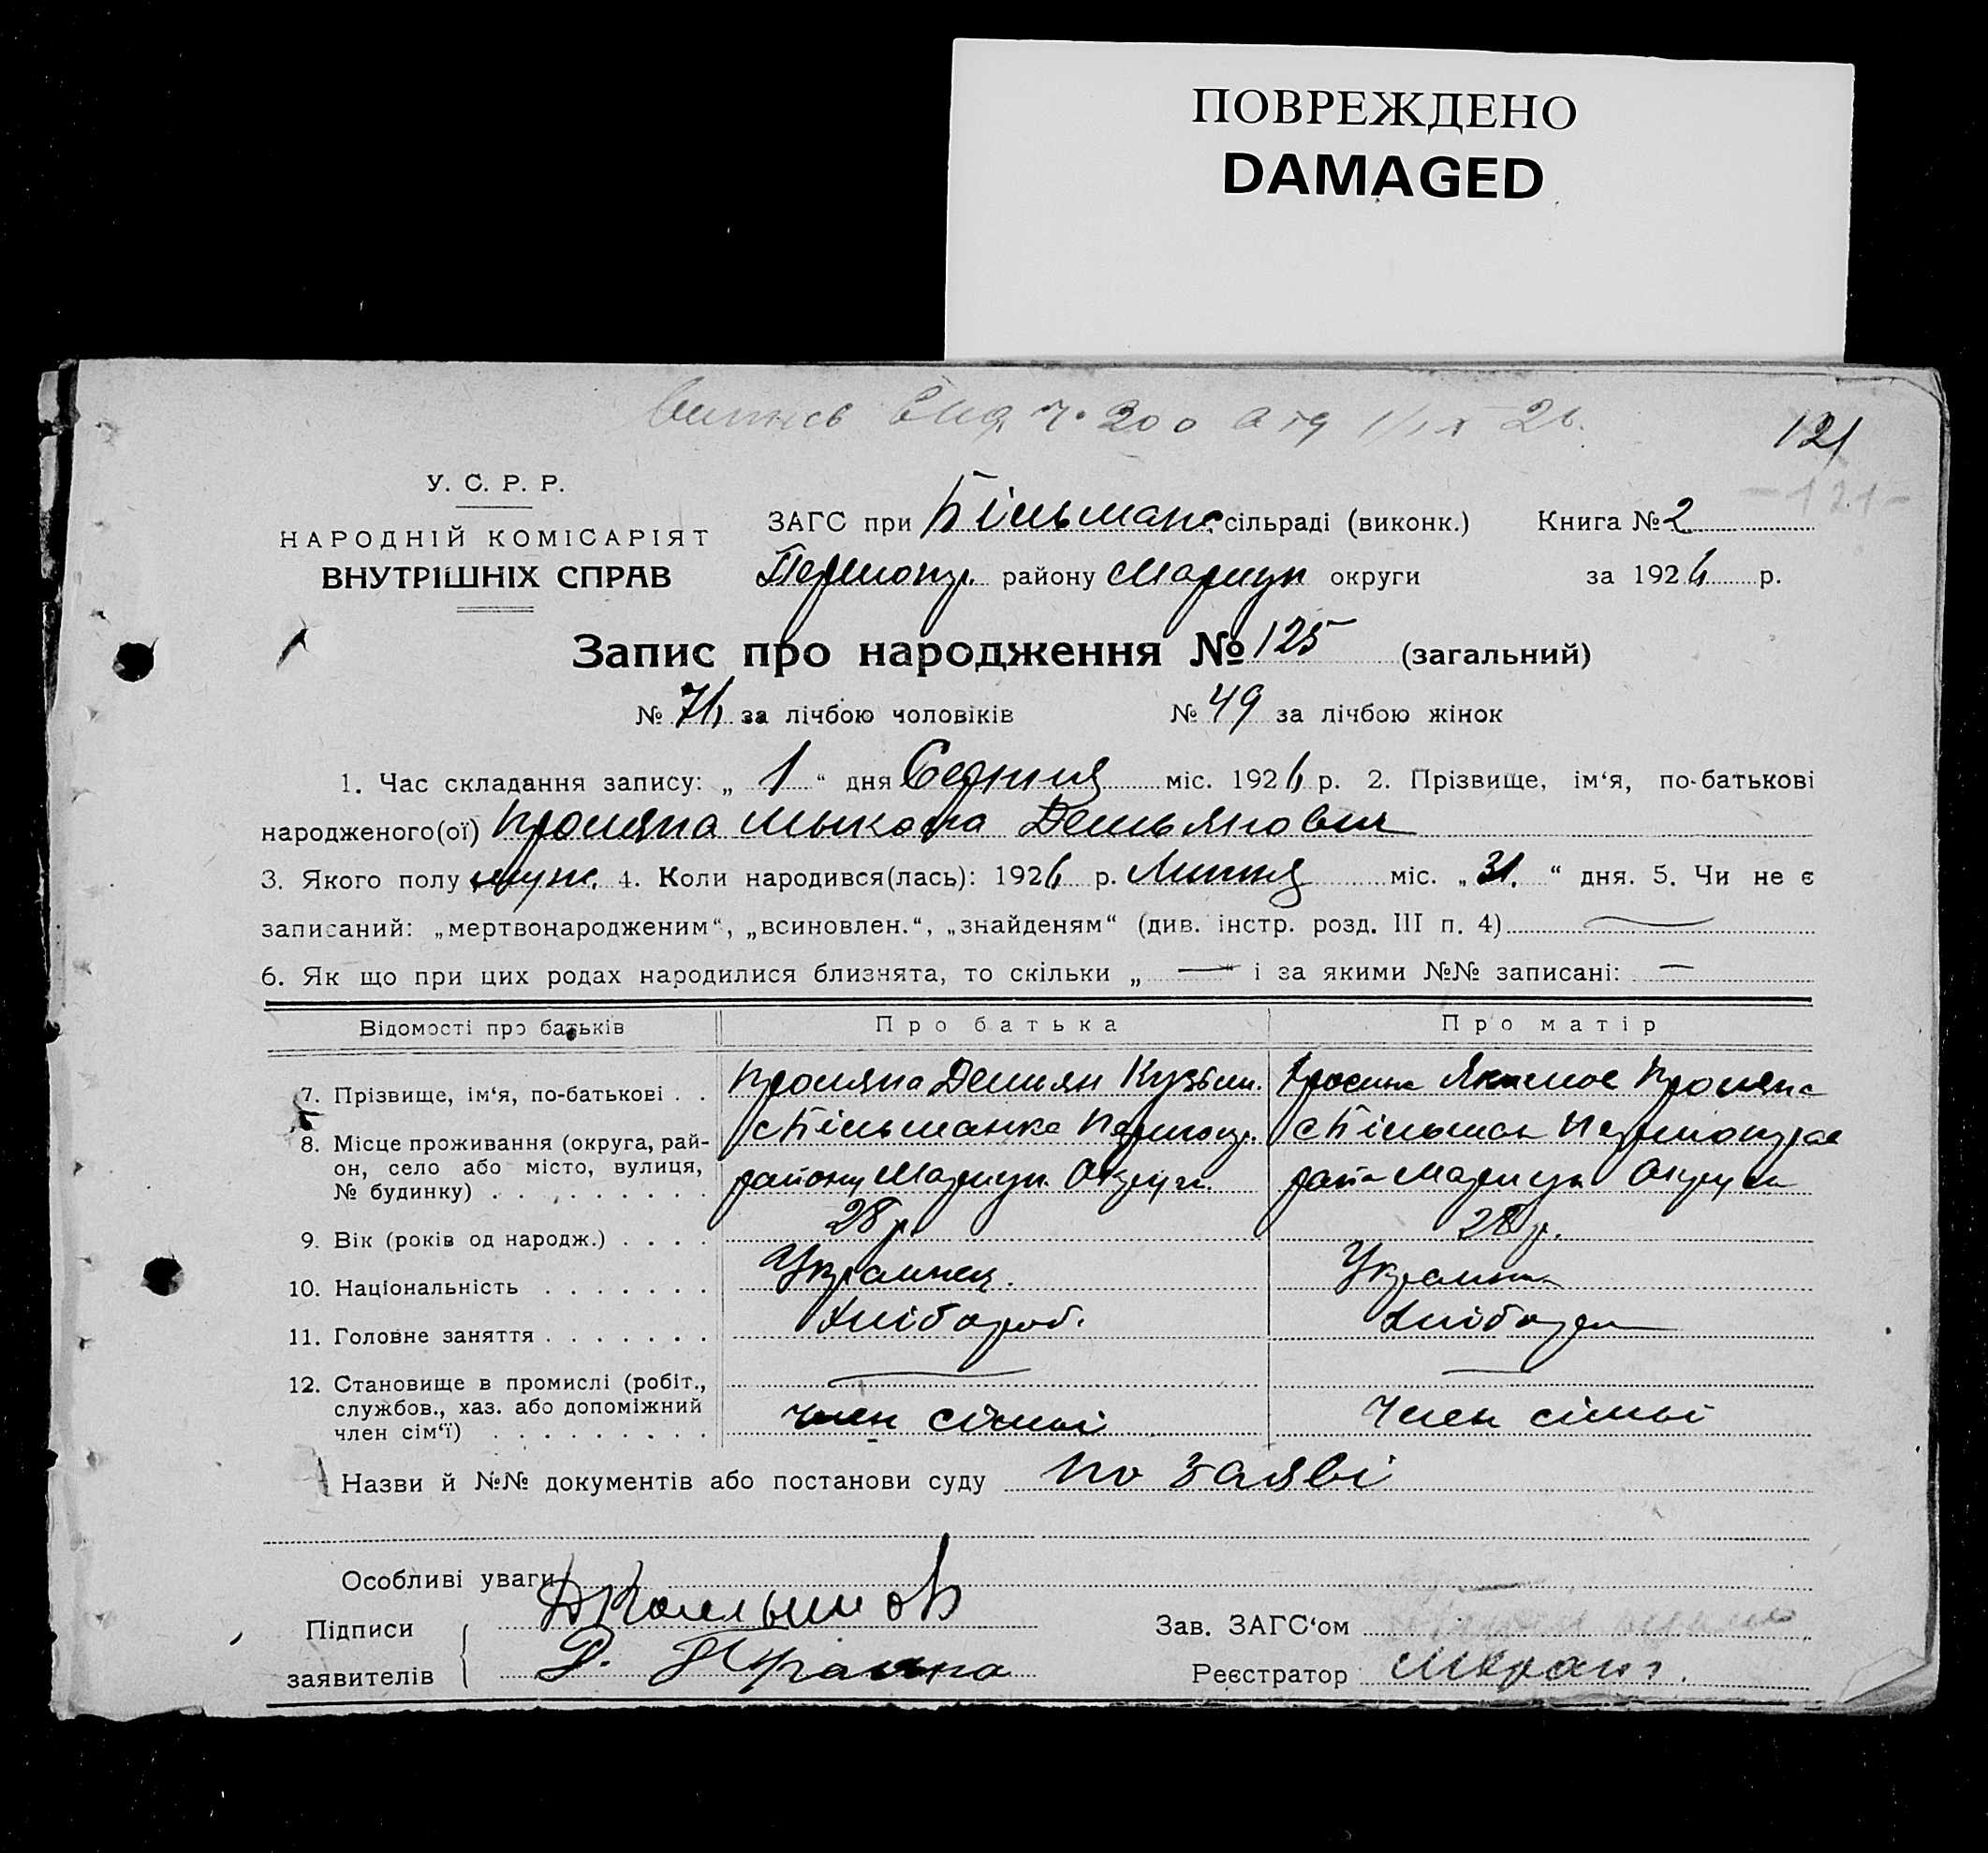 ПОВРЕЖДЕНО
DAMAGED
121
У. С. Р. Р.
-121-
НАРОДНІЙ КОМІСАРІЯТ
ВНУТРІШНІХ СПРАВ
ЗАГС при Більманс. сільраді (виконк.) Книга № 2
Першопр. району Мариуп округи за 1926 р.
Запис про народження № 125 (загальний)
№ 76 за лічбою чоловіків № 49 за лічбою жінок
1. Час складання запису: „ 1 “ дня Серпня міс. 1926 р. 2. Прізвище, ім‘я, по-батькові
народженого(ої) Мыкола Демьянович
3. Якого полу муж. 4. Коли народився(лась): 1926 р. Липня міс. „ 31. “ дня. 5. Чи не є
записаний: „мертвонародженим“, „всиновлен.“, „знайденям“ (див. інстр. розд. III п. 4)
6. Як що при цих родах народилися близнята, то скільки „ — “ і за якими №№ записані: —
Відомості про батьків Про батька Про матір
7. Прізвище, ім‘я, по-батькові . . Демьян Кузьм.
8. Місце проживання (округа, рай- с Більманка с Більман
он, село або місто, вулиця, району Мариуп. Округи Мариуп Округи
№ будинку) . . . . . . . . .
9. Вік (років од народж.) . . . . 28 р. 28 р.
10. Національність . . . . . . . Украинец. Украин
11. Головне заняття . . . . . . . Хлібороб. Хлібороб
12. Становище в промислі (робіт., — —
службов., хаз. або допоміжний член сімьі Член сімьі
член сім‘ї) . . . . . . . . .
Назви й №№ документів або постанови суду по заяві
Особливі уваги
Підписи Зав. ЗАГС‘ом
заявителів Д. Реєстратор